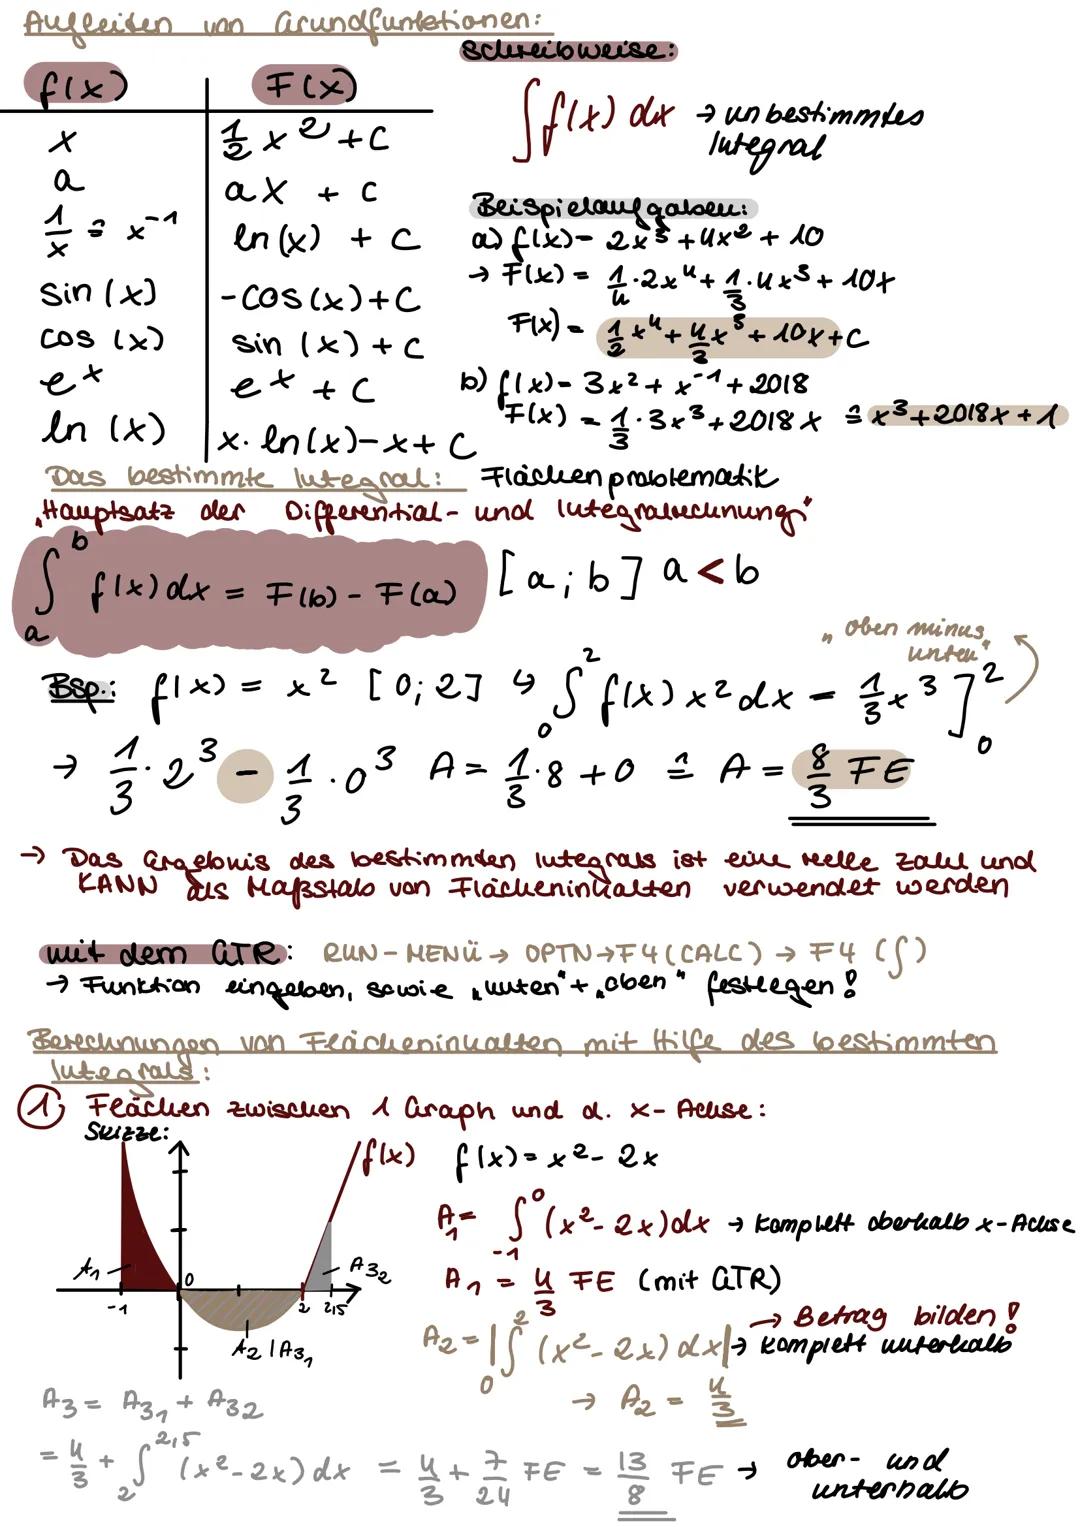 Aufleiten von Grundfunktionen:
Schreibweise:
f(x) | F(x)
x | 1/2 x² + C
a | ax + C
1/x ≙ x⁻¹ | ln(x) + C
sin(x) | -cos(x) + C
cos(x) | sin(x) + C
eˣ | eˣ + C
ln(x) | x·ln(x)-x+C
∫f(x) dx → unbestimmtes
Integral
Beispielaufgaben:
a) f(x) = 2x³ + 4x² + 10
→ F(x) = 1/4·2x⁴ + 1/3·4x³ + 10x
F(x) = 1/2 x⁴ + 4/3 x³ + 10x + C
b) f(x) = 3x² + x⁻¹ + 2018
F(x) = 1/3·3x³ + 2018x ≙ x³ + 2018x + 1
Das bestimmte Integral: Flächenproblematik
„Hauptsatz der Differential- und Integralrechnung"
∫ₐᵇ f(x) dx = F(b) - F(a) [a;b] a < b
„oben minus
unten"
Bsp.: f(x) = x² [0;2] ↳ ∫₀² f(x) x² dx = 1/3 x³]₀²
→ 1/3·2³ - 1/3·0³ A = 1/3·8 + 0 ≙ A = 8/3 FE
→ Das Ergebnis des bestimmten Integrals ist eine reelle Zahl und
KANN als Maßstab von Flächeninhalten verwendet werden
mit dem GTR: RUN-MENÜ → OPTN → F4 (CALC) → F4 (∫)
→ Funktion eingeben, sowie „unten" + „oben" festlegen!
Berechnungen von Flächeninhalten mit Hilfe des bestimmten
Integrals:
① Flächen zwischen 1 Graph und d. x-Achse:
Skizze:
f(x)
A₁
-1
0
2
2,5
A₃₂
A₂ | A₃₁
f(x) = x² - 2x
A₁ = ∫₋₁⁰ (x² - 2x) dx → komplett oberhalb x-Achse
A₁ = 4/3 FE (mit GTR)
→ Betrag bilden!
A₂ = |∫₀² (x² - 2x) dx| → komplett unterhalb
→ A₂ = 4/3
A₃ = A₃₁ + A₃₂
= 4/3 + ∫₂^2,5 (x² - 2x) dx = 4/3 + 7/24 FE = 13/8 FE → ober- und
unterhalb